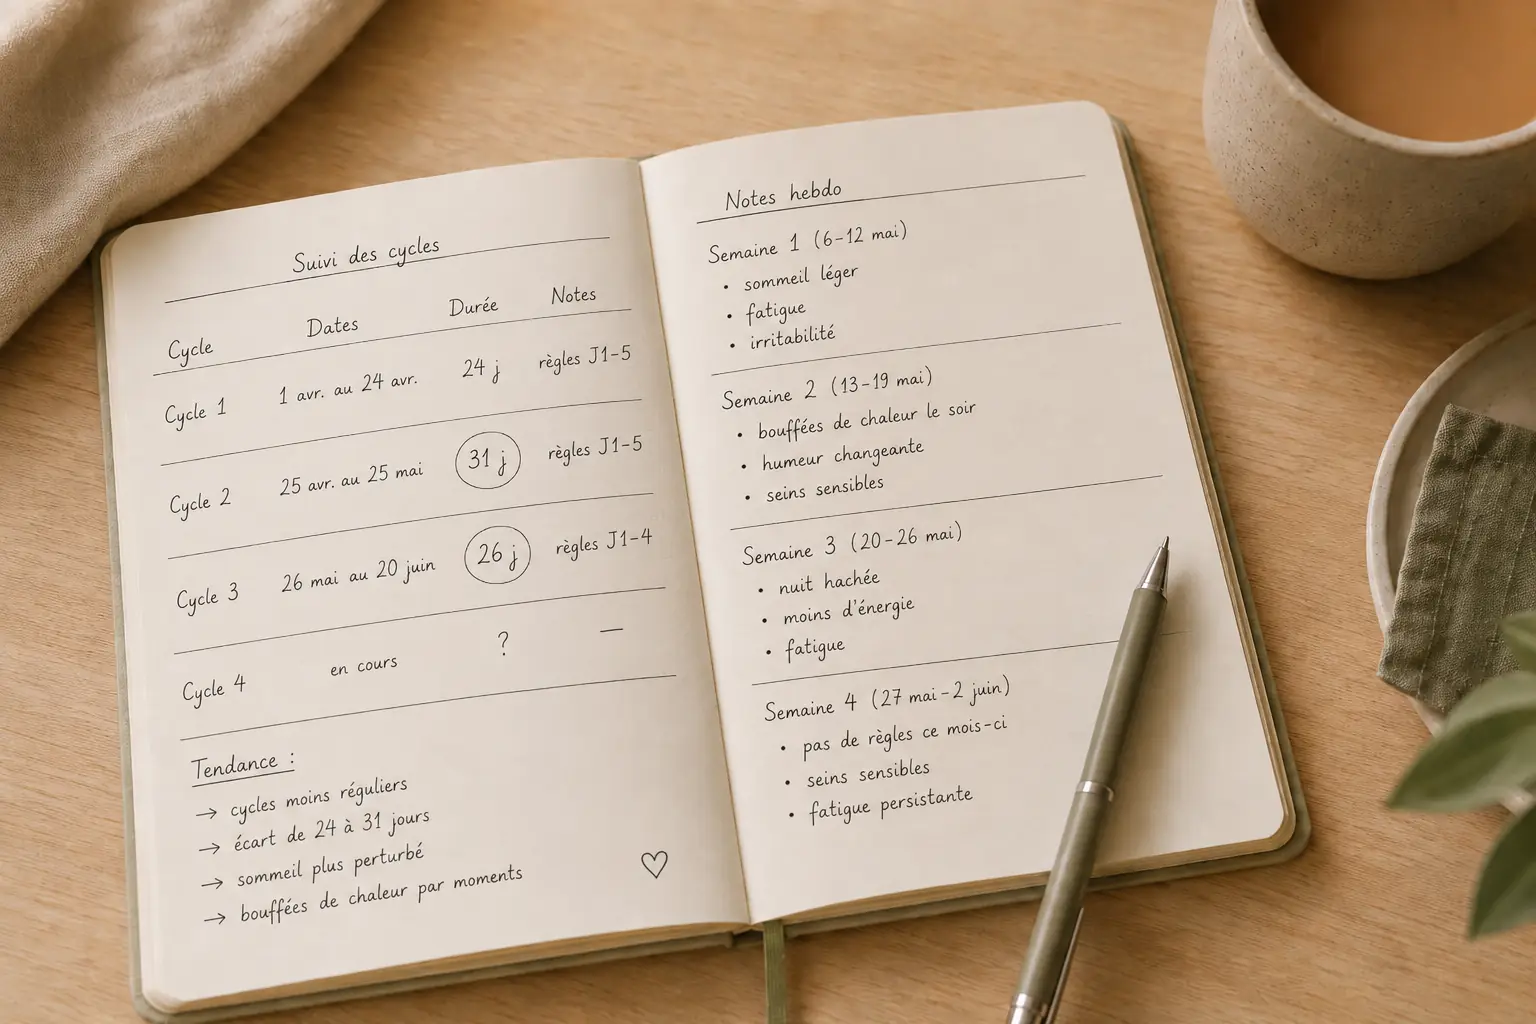 Suivi des cycles
Cycle Dates Durée Notes
Cycle 1 1 avr. au 24 avr. 24 j règles J1-5
Cycle 2 25 avr. au 25 mai 31 j règles J1-5
Cycle 3 26 mai au 20 juin 26 j règles J1-4
Cycle 4 en cours ? —
Tendance :
→ cycles moins réguliers
→ écart de 24 à 31 jours
→ sommeil plus perturbé
→ bouffées de chaleur par moments
Notes hebdo
Semaine 1 (6-12 mai)
• sommeil léger
• fatigue
• irritabilité
Semaine 2 (13-19 mai)
• bouffées de chaleur le soir
• humeur changeante
• seins sensibles
Semaine 3 (20-26 mai)
• nuit hachée
• moins d'énergie
• fatigue
Semaine 4 (27 mai-2 juin)
• pas de règles ce mois-ci
• seins sensibles
• fatigue persistante